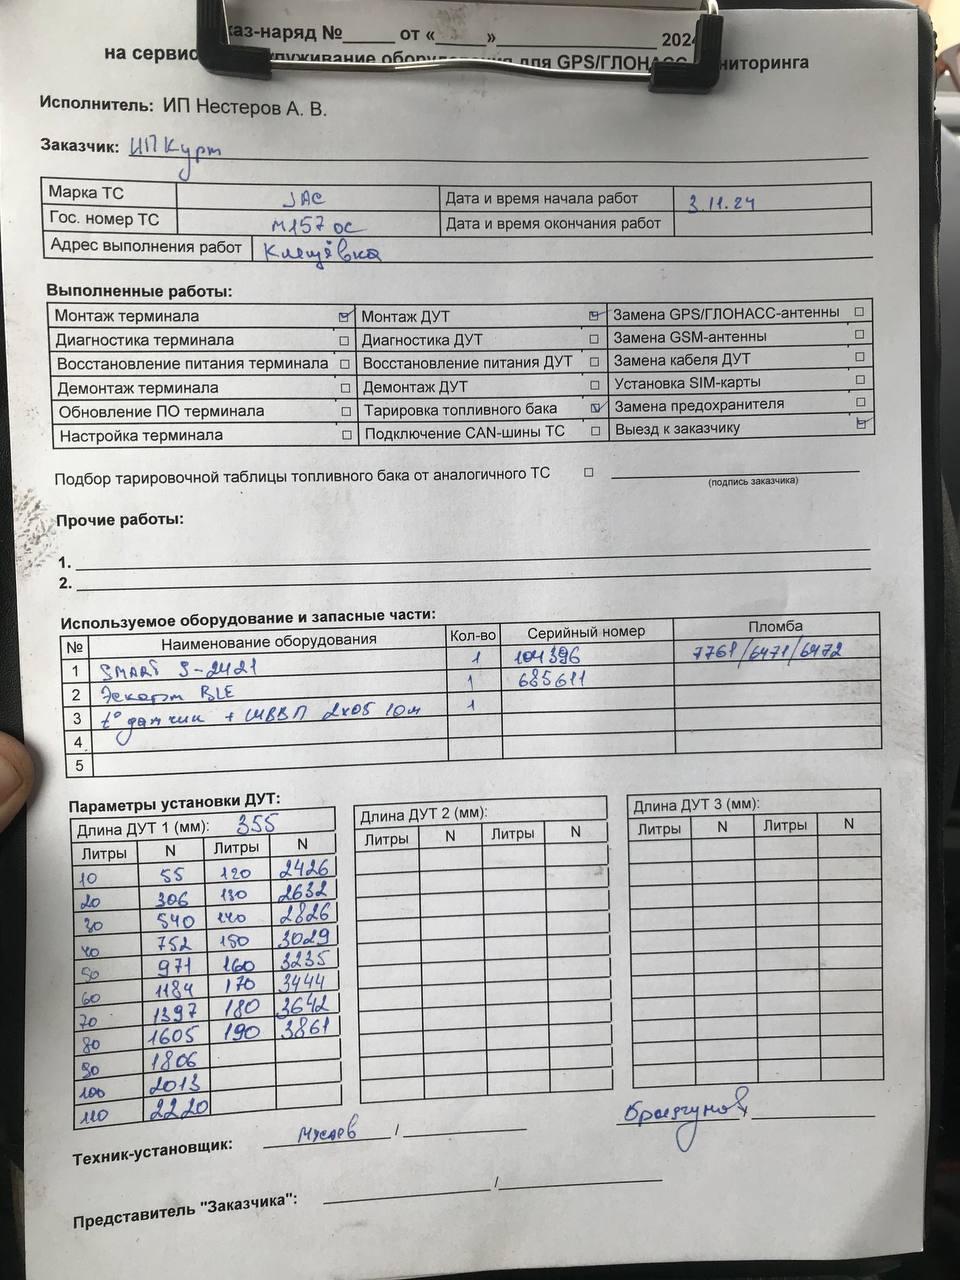 каз-наряд №_____ от «____» ______________ 2024
на сервис луживание оборудования для GPS/ГЛОНАСС мониторинга
Исполнитель: ИП Нестеров А. В.
Заказчик: ИП Курт
Марка ТС JAC Дата и время начала работ 3.11.24
Гос. номер ТС М157ос Дата и время окончания работ
Адрес выполнения работ Клещёвка
Выполненные работы:
Монтаж терминала ☑ Монтаж ДУТ ☑ Замена GPS/ГЛОНАСС-антенны ☐
Диагностика терминала ☐ Диагностика ДУТ ☐ Замена GSM-антенны ☐
Восстановление питания терминала ☐ Восстановление питания ДУТ ☐ Замена кабеля ДУТ ☐
Демонтаж терминала ☐ Демонтаж ДУТ ☐ Установка SIM-карты ☐
Обновление ПО терминала ☐ Тарировка топливного бака ☑ Замена предохранителя ☐
Настройка терминала ☐ Подключение CAN-шины ТС ☐ Выезд к заказчику ☑
Подбор тарировочной таблицы топливного бака от аналогичного ТС ☐
(подпись заказчика)
Прочие работы:
1.
2.
Используемое оборудование и запасные части:
№ Наименование оборудования Кол-во Серийный номер Пломба
1 SMART S-2421 1 104396 7761/6471/6472
2 Эскорт BLE 1 685611
3 t° датчик + ШВВП 2х05 10м 1
4
5
Параметры установки ДУТ:
Длина ДУТ 1 (мм): 355 Длина ДУТ 2 (мм): Длина ДУТ 3 (мм):
Литры N Литры N Литры N Литры N Литры N Литры N
10 55 120 2426
20 306 130 2632
30 540 140 2826
40 752 150 3029
50 971 160 3235
60 1184 170 3444
70 1397 180 3642
80 1605 190 3861
90 1806
100 2013
110 2220
Техник-установщик: Мусаев /
Представитель "Заказчика": /